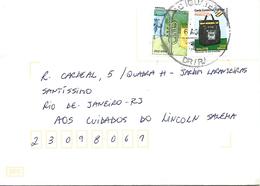 R. CARDEAL, 5 / QUADRA H - JARDIM LARANJEIRAS
SANTÍSSIMO
RIO DE JANEIRO - RJ
AOS CUIDADOS DO LINCOLN SALEMA
23098067